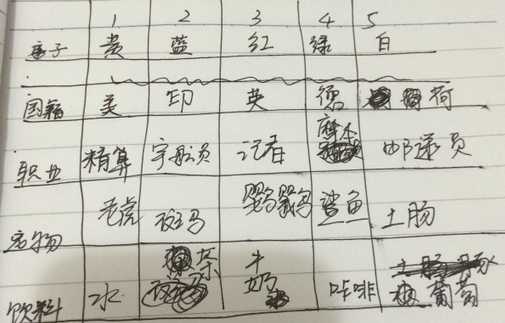 1 2 3 4 5
房子 黄 蓝 红 绿 白
国籍 美 印 英 德 荷
职业 精算 宇航员 记者 邮递员
老虎 斑马 鹦鹉 鲨鱼 土肠
宠物
茶 牛奶
饮料 水 咖啡 葡萄